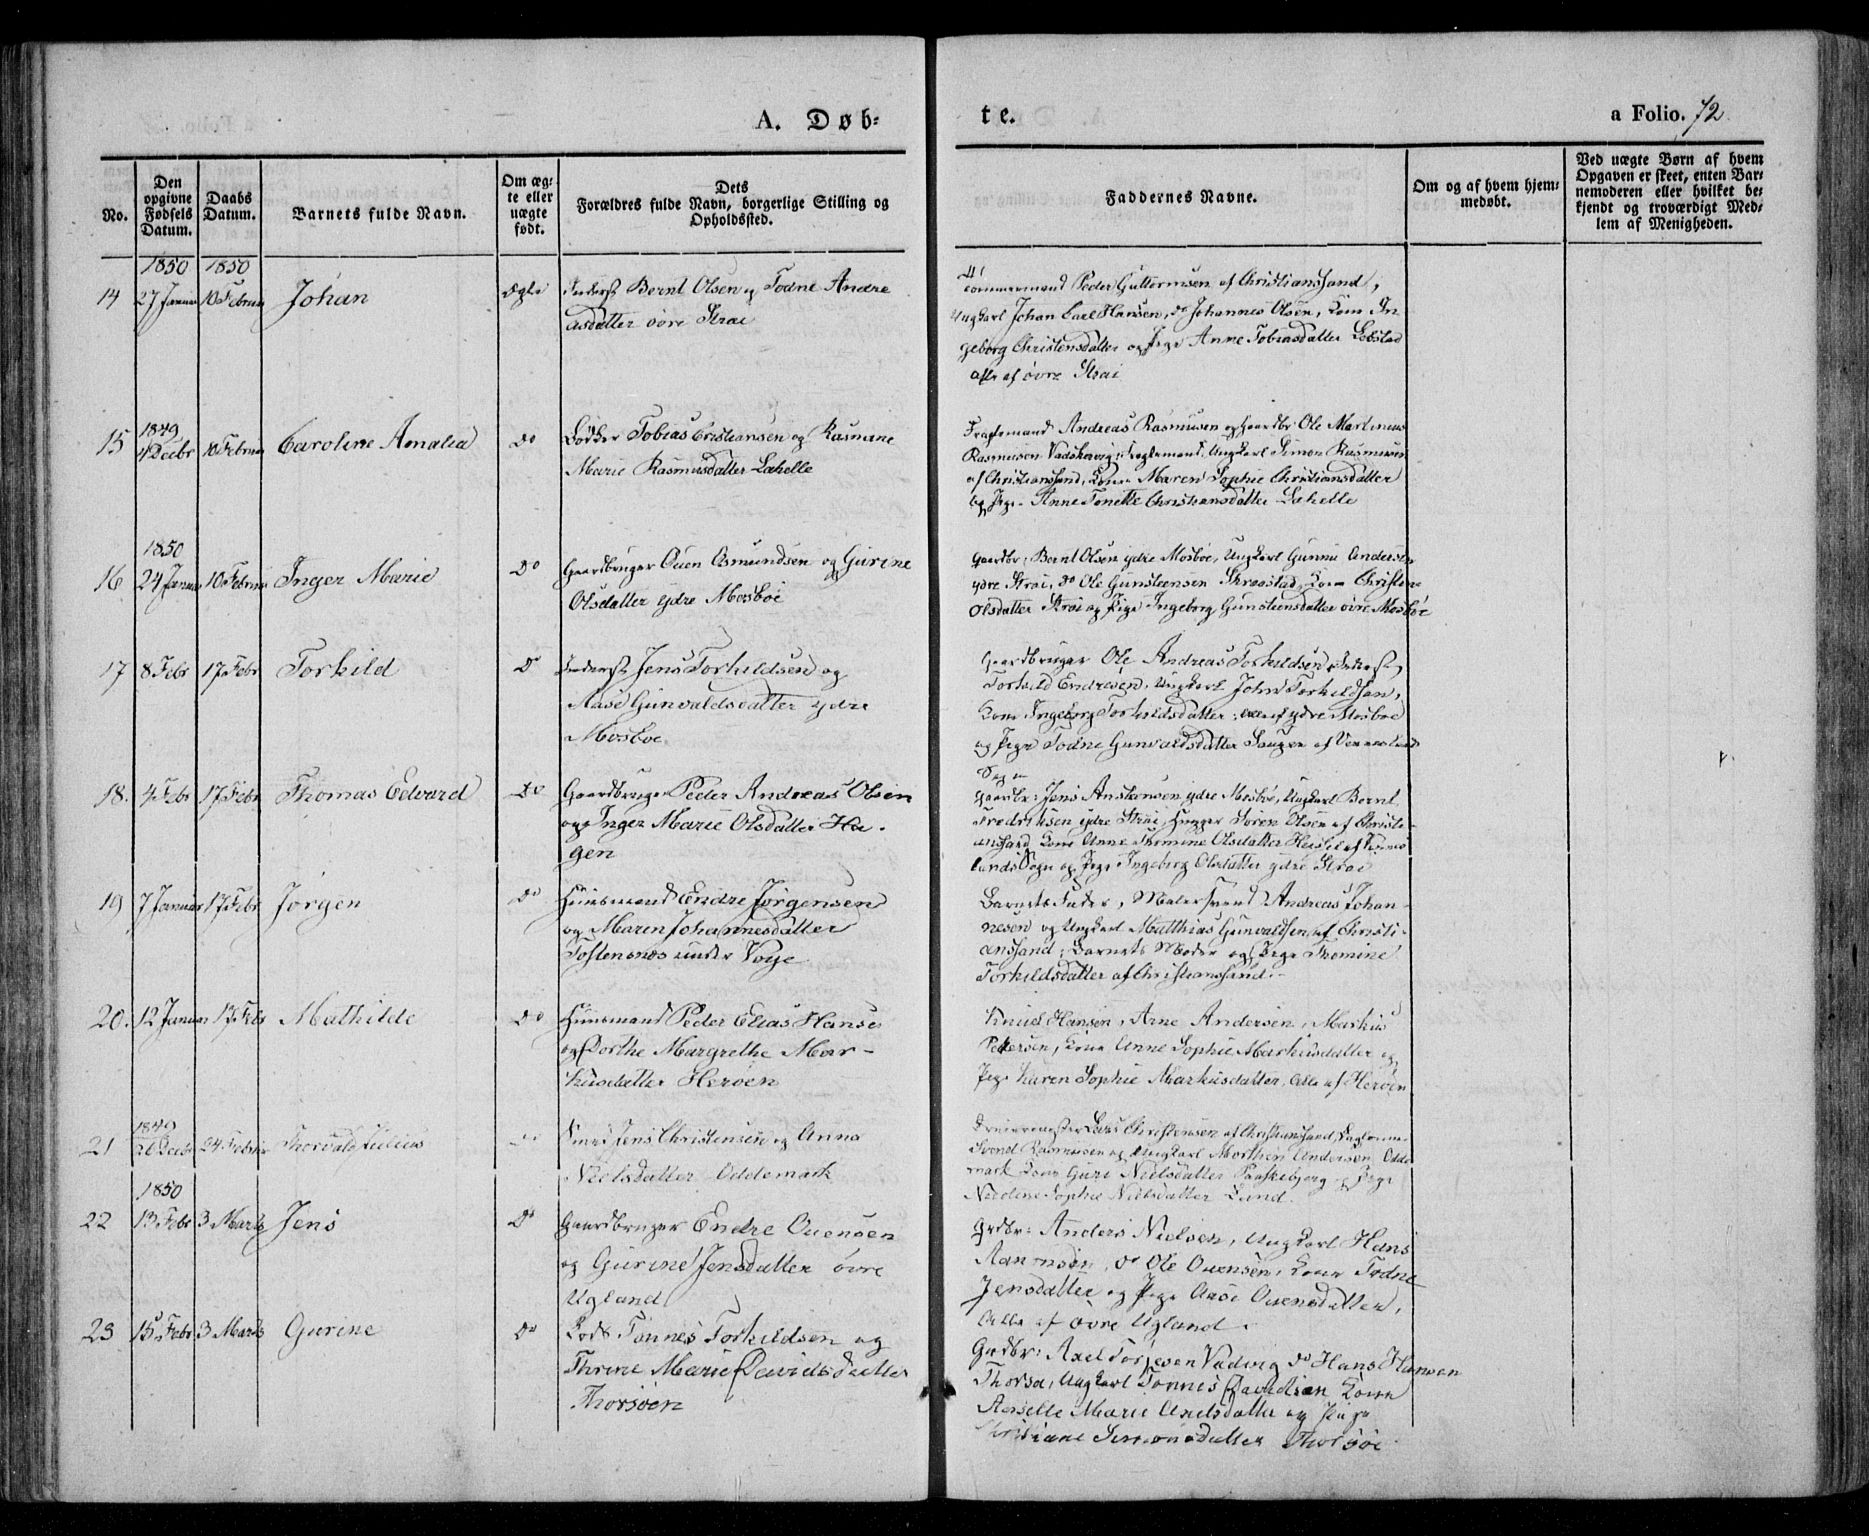 A. Døb-
te.
a Folio. 72
No.
Den opgivne Fødsels Datum.
Daabs Datum.
Barnets fulde Navn.
Om ægte eller uægte født.
Dets Forældres fulde Navn, borgerlige Stilling og Opholdssted.
Faddernes Navne.
Om og af hvem hjemmedøbt.
Ved uægte Børn af hvem Opgaven er skeet, enten Barnemoderen eller hvilket bekjendt og troværdigt Medlem af Menigheden.
1850 1850
14 27 Januar 10 Februar Johan ægte Inderst Bernt Olsen og Todne Andre
asdatter øvre Strai
Tømmermand Peder Guttormsen af Christianssand,
Ungkarl Johan Carl Hansen, do Johannes Olsen, Kone In
geborg Christensdatter og Pige Anne Tobiasdatter
alle af øvre Strai
1849
15 4 Decbr 10 Februar Caroline Amalia Do Tobias Cristiansen og Rasmine
Marie Rasmusdatter Lahelle
Fragtemand Andreas Rasmusen og Gaardbr Ole Martinius
Rasmusen Ungkarl Simon Rasmusen
af Christianssand, Kone Maren Sophie Christiansdatter
og Pige Anne Tonette Christiansdatter Lahelle
1850
16 24 Januar 10 Februar Inger Marie Do Gaardbruger Ouen Asmundsen og Gurine
Olsdatter ydre Mosbøe
Gaardbr: Bernt Olsen ydre Mosbøe, Ungkarl Gunnu Andersen
ydre Strai, do Ole Gunsteensen Kone Christine
Olsdatter Strai og Pige Ingeborg Gunsteensdatter øvre Mosbøe
17 8 Febr 17 Febr Torkild Do Inderst Jens Torkildsen og
Aase Gunvaldsdatter ydre
Mosbøe
Gaardbruger Ole Andreas Torkildsen, Inderst
Torkild Endresen, Ungkarl John Torkildsen,
Kone Ingeborg Torkildsdatter; alle af ydre Mosbøe
og Pige Todne Gunvaldsdatter af Vennesland
Sogn
18. 4 Febr 17 Febr Thomas Edvard Do Gaardbruger Peder Andreas Olsen
og Inger Marie Olsdatter Ha-
gen
Gaardbr: Jens Anstensen ydre Mosbøe, Ungkarl Bernt
Fredriksen ydre Strai, Soren Olsen af Christi-
anssand Kone Anne Thomine Olsdatter af Vennes
lands Sogn og Pige Ingeborg Olsdatter ydre Strai
19 7 Januar 17 Febr Jørgen Do Huusmand Endre Jørgensen
og Maren Johannesdatter
Tostensnes under Voije
Barnets Fader, Malersvend Andreas Johan-
nesen og Ungkarl Matthias Gunvaldsen af Christi-
anssand; Barnets Moder og Pige Thomine
Torkildsdatter af Christianssand.
20. 12 Januar 17 Febr Mathilde Do Huusmand Peder Elias Hansen
og Dorthe Margrethe Mar-
kusdatter Herøen
Knud Hansen, Arne Andersen, Markus
Pedersen, Kone Anne Sophie Markusdatter og
Pige Karen Sophie Markusdatter, Alle af Herøen
1849
21 26 Decbr 24 Februar Thorvald Julius Smed Jens Christensen og Anna
Nielsdatter Oddemark
Dreiermester Lars Christensen af Christianssand,
Svend Rasmusen og Ungkarl Morthen Andersen Odde
mark Kone Guri Nielsdatter og Pige
Nicoline Sophie Nielsdatter Lund.
1850
22 13 Febr 3 Marts Jens Do Gaardbruger Endre Ouensen
og Gurine Jensdatter øvre
Ugland
Grdbr: Anders Nielsen, Ungkarl Hans
Aanonsen, do Ole Ouensen, Kone Todne
Jensdatter og Pige Aase Ouensdatter,
Alle af øvre Ugland.
23 15 Febr 3 Marts Gurine Do Lods Tønnes Torkildsen og
Thrine Marie Davidsdatter
Thorsøen
Grdbr: Axel Torjesen do Hans Hansen
Thorsø, Ungkarl Tonnes Davidsen Kone
Marie Axelsdatter og Pige
Simonsdatter Thorsøe